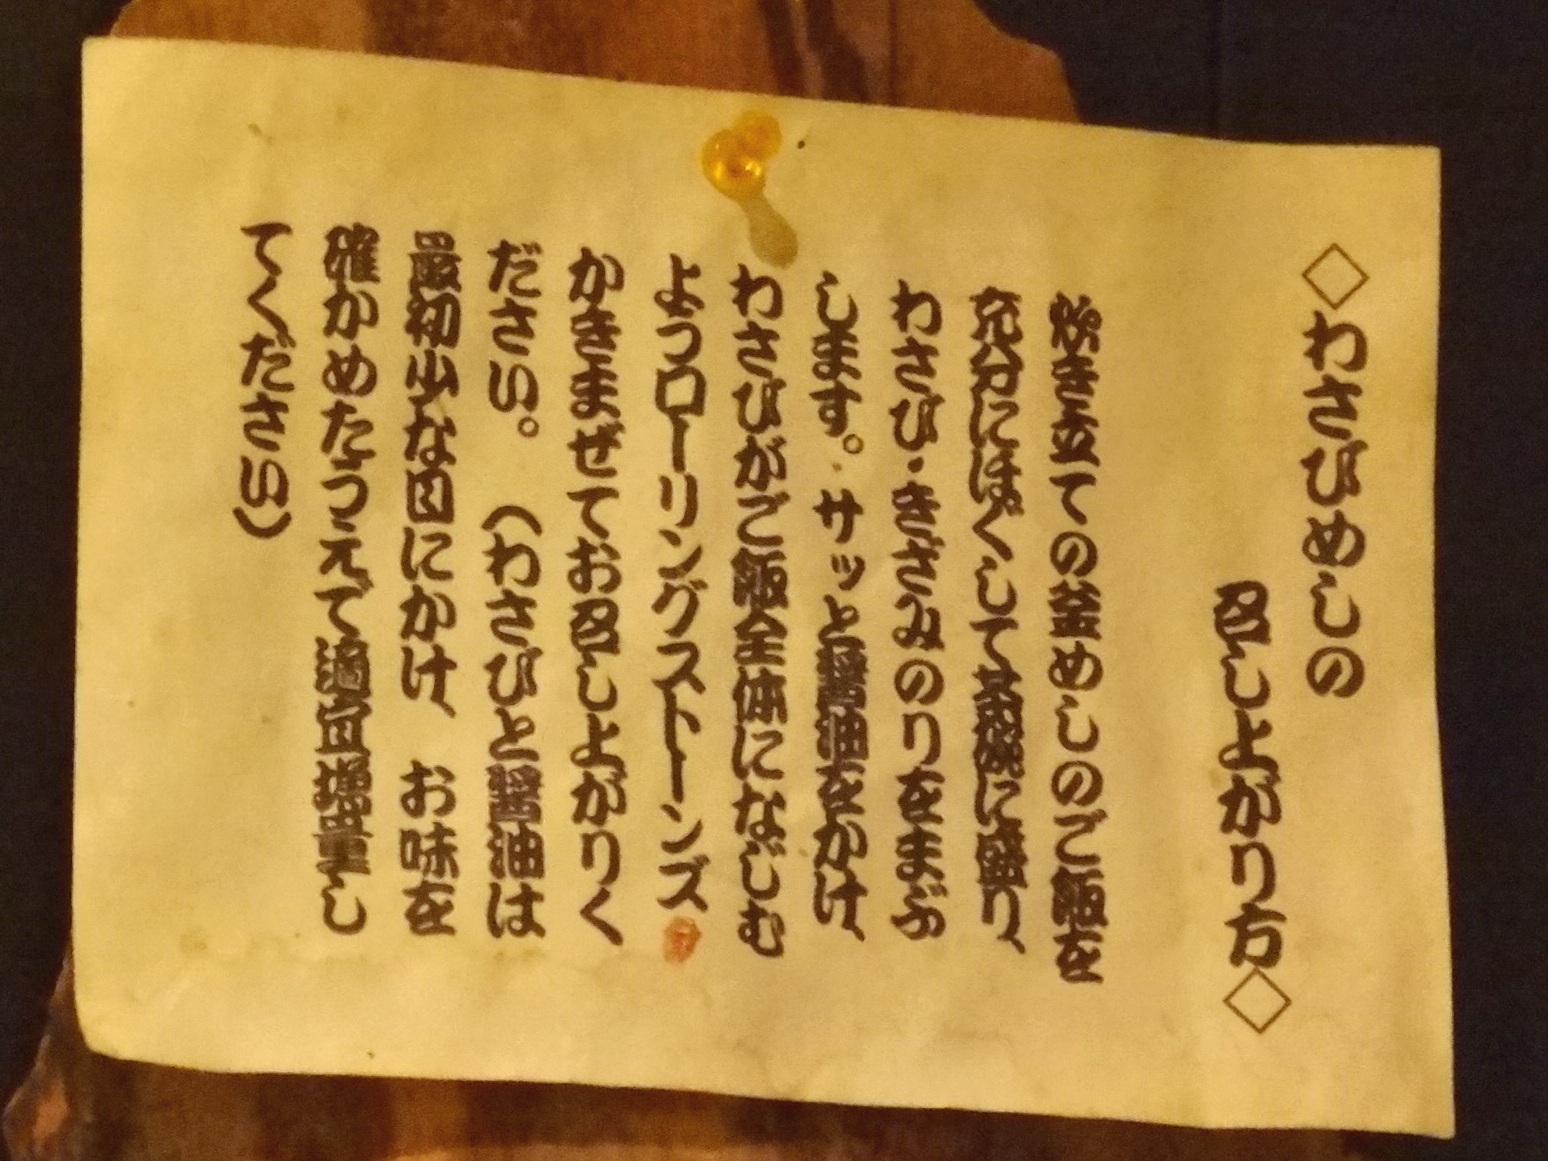 ◇わさびめしの
召し上がり方◇
炊き立ての釜めしのご飯を
充分にほぐして茶碗に盛り、
わさび・きざみのりをまぶ
します。サッと醤油をかけ、
わさびがご飯全体になじむ
ようローリングストーンズ
かきまぜてお召し上がりく
ださい。（わさびと醤油は
最初少な目にかけ、お味を
確かめたうえで適宜増量し
てください）